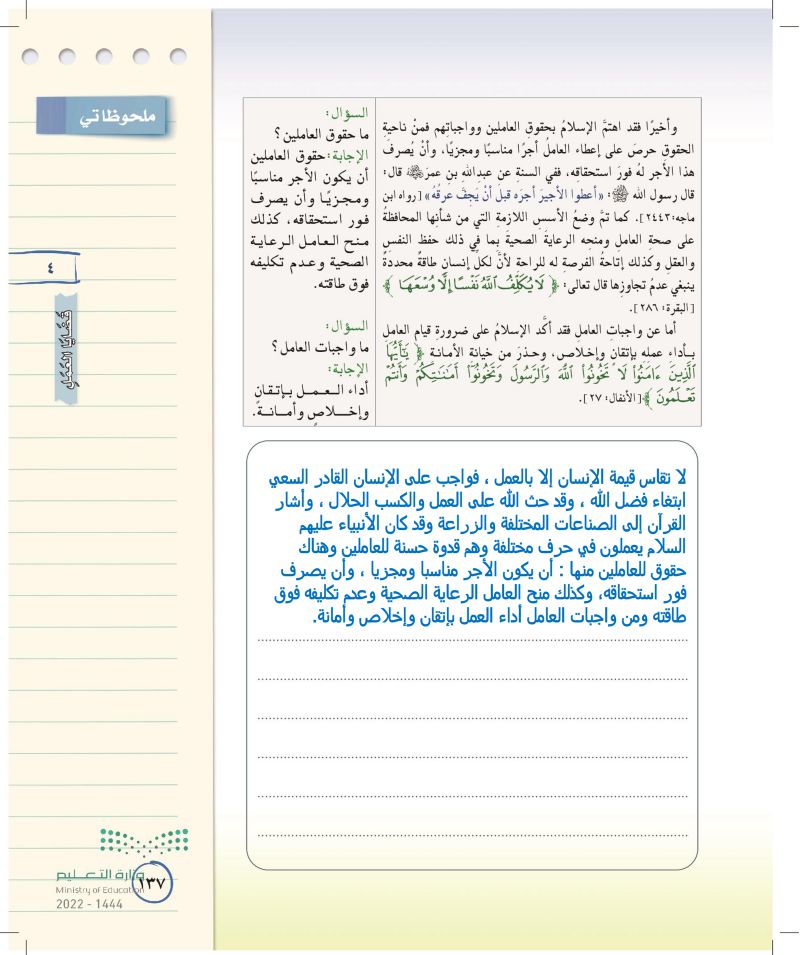 ملحوظاتي
وأخيرًا فقد اهتمَّ الإسلامُ بحقوقِ العاملين وواجباتِهم فمنْ ناحيةِ
الحقوق حرصَ على إعطاء العاملُ أجرًا مناسبًا ومجزيًا، وأنْ يُصرف
هذا الأجر لهُ فورَ استحقاقِه، ففي السنةِ عن عبدِاللهِ بنِ عمرَ قال:
قال رسول الله ﷺ: «أعطوا الأجيرَ أجرَه قبلَ أنْ يَجِفَّ عرقُهُ» [رواه ابن
ماجه:٢٤٤٣]. كما تمَّ وضعُ الأسسِ اللازمةِ التي من شأنِها المحافظةُ
على صحةِ العاملِ ومنحِه الرعايةَ الصحيةَ بما في ذلك حفظ النفسِ
والعقلِ وكذلك إتاحةُ الفرصةِ له للراحةِ لأنَّ لكلِّ إنسانٍ طاقةً محددةً
ينبغي عدمُ تجاوزِها قال تعالى: ﴿ لَا يُكَلِّفُ ٱللَّهُ نَفْسًا إِلَّا وُسْعَهَا ﴾
[البقرة: ٢٨٦].
أما عن واجباتِ العاملِ فقد أكَّد الإسلامُ على ضرورةِ قيامِ العاملِ
بـأداءِ عملِه بإتقانٍ وإخلاصٍ، وحـذرَ من خيانةِ الأمانـةِ ﴿ يَٰٓأَيُّهَا
ٱلَّذِينَ ءَامَنُوا۟ لَا تَخُونُوا۟ ٱللَّهَ وَٱلرَّسُولَ وَتَخُونُوٓا۟ أَمَٰنَٰتِكُمْ وَأَنتُمْ
تَعْلَمُونَ ﴾ [الأنفال: ٢٧].
السؤال:
ما حقوق العاملين؟
الإجابة: حقوق العاملين
أن يكون الأجر مناسبًا
ومجزيًا وأن يصرف
فور استحقاقه، كذلك
منح العامل الرعاية
الصحية وعدم تكليفه
فوق طاقته.
السؤال:
ما واجبات العامل؟
الإجابة:
أداء العمل بإتقان
وإخلاصٍ وأمانةً.
٤
قَضَايَا العَمَلِ
لا تقاس قيمة الإنسان إلا بالعمل ، فواجب على الإنسان القادر السعي
ابتغاء فضل الله ، وقد حث الله على العمل والكسب الحلال ، وأشار
القرآن إلى الصناعات المختلفة والزراعة وقد كان الأنبياء عليهم
السلام يعملون في حرف مختلفة وهم قدوة حسنة للعاملين وهناك
حقوق للعاملين منها : أن يكون الأجر مناسبا ومجزيا ، وأن يصرف
فور استحقاقه، وكذلك منح العامل الرعاية الصحية وعدم تكليفه فوق
طاقته ومن واجبات العامل أداء العمل بإتقان وإخلاص وأمانة.
وزارة التعليم
Ministry of Education
2022 - 1444
١٣٧